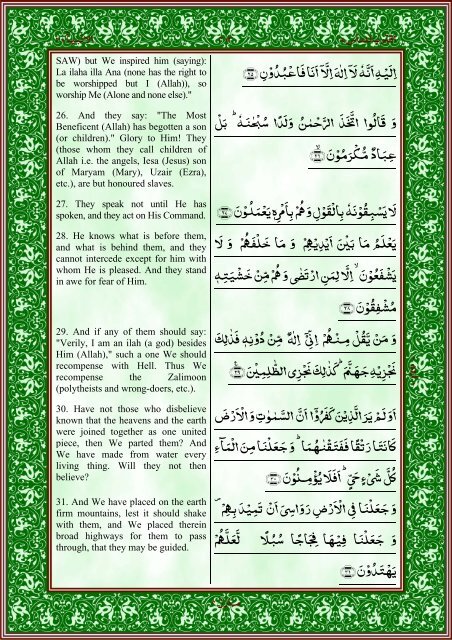 SAW) but We inspired him (saying):
La ilaha illa Ana (none has the right to
be worshipped but I (Allah)), so
worship Me (Alone and none else)."
اِلَيْهِ اَنَّهٗ لَاۤ اِلٰهَ اِلَّاۤ اَنَا فَاعْبُدُوْنِ ﴿۲۵﴾
26. And they say: "The Most
Beneficent (Allah) has begotten a son
(or children)." Glory to Him! They
(those whom they call children of
Allah i.e. the angels, Iesa (Jesus) son
of Maryam (Mary), Uzair (Ezra),
etc.), are but honoured slaves.
وَ قَالُوا اتَّخَذَ الرَّحْمٰنُ وَلَدًا سُبْحٰنَهٗ ؕ بَلْ
عِبَادٌ مُّكْرَمُوْنَ ۙ﴿۲۶﴾
27. They speak not until He has
spoken, and they act on His Command.
لَا يَسْبِقُوْنَهٗ بِالْقَوْلِ وَ هُمْ بِاَمْرِهٖ يَعْمَلُوْنَ ﴿۲۷﴾
28. He knows what is before them,
and what is behind them, and they
cannot intercede except for him with
whom He is pleased. And they stand
in awe for fear of Him.
يَعْلَمُ مَا بَيْنَ اَيْدِيْهِمْ وَ مَا خَلْفَهُمْ وَ لَا
يَشْفَعُوْنَ ۙ اِلَّا لِمَنِ ارْتَضٰى وَ هُمْ مِّنْ خَشْيَتِهٖ
مُشْفِقُوْنَ ﴿۲۸﴾
29. And if any of them should say:
"Verily, I am an ilah (a god) besides
Him (Allah)," such a one We should
recompense with Hell. Thus We
recompense the Zalimoon
(polytheists and wrong-doers, etc.).
وَ مَنْ يَّقُلْ مِنْهُمْ اِنِّيْۤ اِلٰهٌ مِّنْ دُوْنِهٖ فَذٰلِكَ
نَجْزِيْهِ جَهَنَّمَ ؕ كَذٰلِكَ نَجْزِي الظّٰلِمِيْنَ ﴿۲۹﴾
30. Have not those who disbelieve
known that the heavens and the earth
were joined together as one united
piece, then We parted them? And
We have made from water every
living thing. Will they not then
believe?
اَوَ لَمْ يَرَ الَّذِيْنَ كَفَرُوْۤا اَنَّ السَّمٰوٰتِ وَ الْاَرْضَ
كَانَتَا رَتْقًا فَفَتَقْنٰهُمَا ؕ وَ جَعَلْنَا مِنَ الْمَآءِ
كُلَّ شَيْءٍ حَيٍّ ؕ اَفَلَا يُؤْمِنُوْنَ ﴿۳۰﴾
31. And We have placed on the earth
firm mountains, lest it should shake
with them, and We placed therein
broad highways for them to pass
through, that they may be guided.
وَ جَعَلْنَا فِي الْاَرْضِ رَوَاسِيَ اَنْ تَمِيْدَ بِهِمْ ۪
وَ جَعَلْنَا فِيْهَا فِجَاجًا سُبُلًا لَّعَلَّهُمْ
يَهْتَدُوْنَ ﴿۳۱﴾